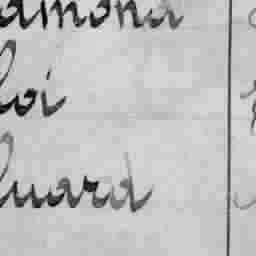 amond
loi
luard